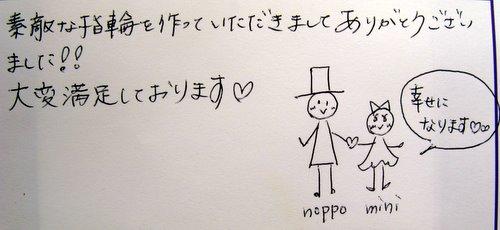 素敵な指輪を作っていただきましてありがとうござい
ました!!
大変満足しております♡
幸せに
なります♡♡
noppo mini